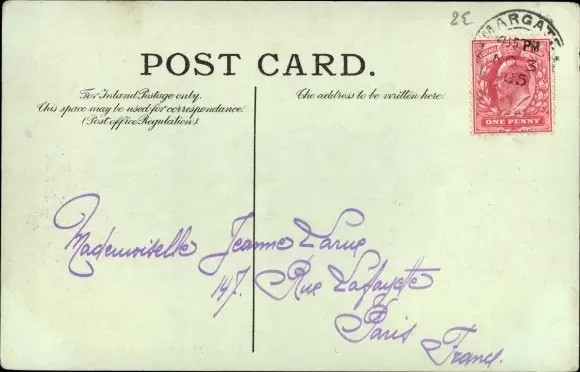 2E
MARGATE
POST CARD.
For Inland Postage only.
This space may be used for correspondance.
(Post office Regulation).
The address to be written here.
ONE PENNY
Mademoiselle Jeanne Larue
147. Rue Lafayette
Paris
France.